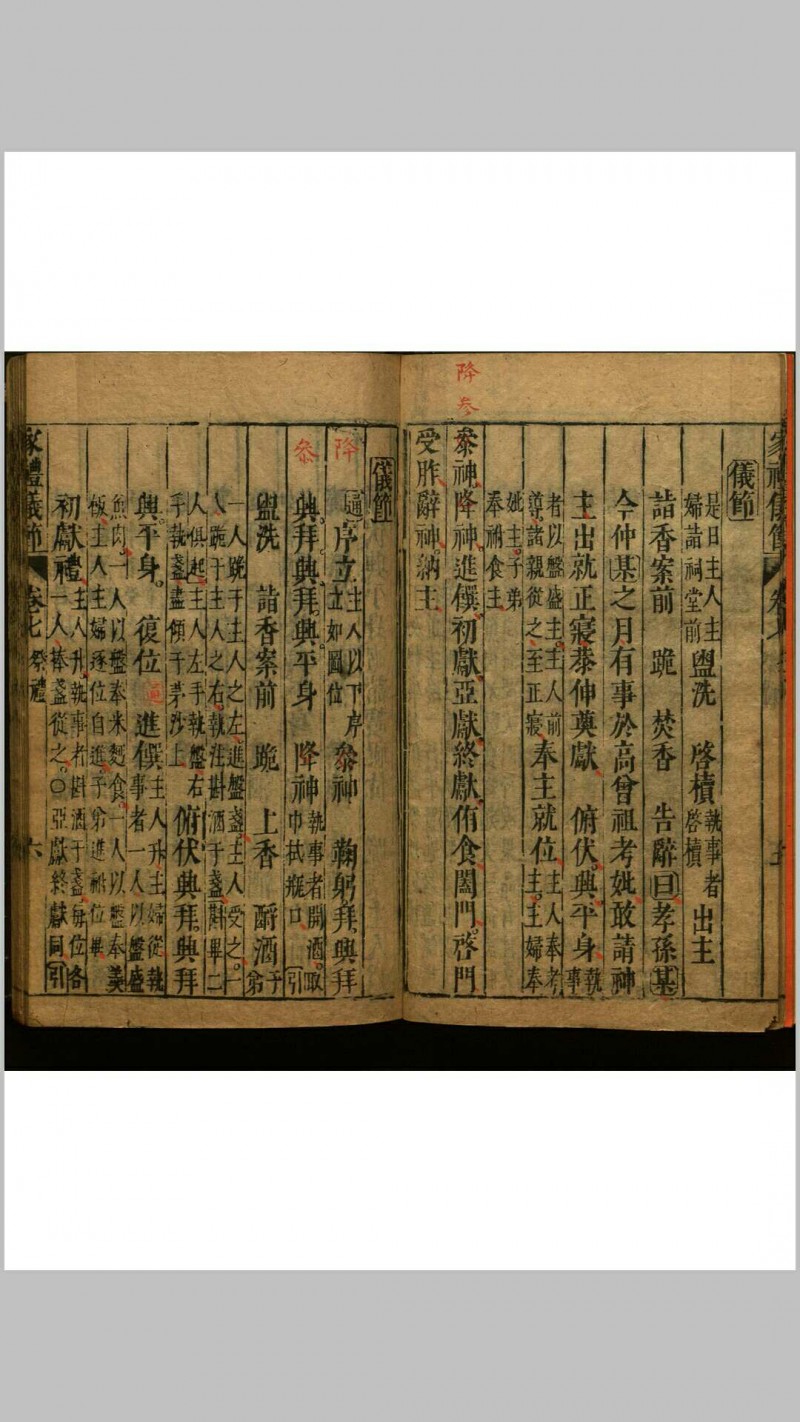 儀節
是日主人主婦詣祠堂前 盥洗 啓櫝 執事者啓櫝 出主
詣香案前 跪 焚香 告辭曰孝孫某
今仲某之月有事於高曾祖考妣敢請神
主出就正寢恭伸奠獻 俯伏興平身 執事
者以盤盛主主人前導諸親從之至正寢 奉主就位 主人奉考主主婦奉
妣主子弟奉祔食主
降參
參神降神進饌初獻亞獻終獻侑食闔門啓門
受胙辭神納主
儀節
通序立 主人以下序立如圖位 參神 鞠躬拜興拜
降
興拜興拜興平身 降神 執事者開酒取巾拭瓶口 引
參
盥洗 詣香案前 跪 上香 酹酒 子弟
一人跪于主人之左進盤盞主人受之一人跪于主人之右執注斟酒于盞斟畢二
人俱起主人左手執盤右手執盞盡傾于茅沙上 俯伏興拜興拜
興平身 復位 通 進饌 主人升主婦從執事者一人以盤盛
魚肉一人以盤奉米麵食一人以盤奉羹飯主人主婦逐位自進子弟進祔位畢
初獻禮 主人升執事者斟酒于盞每位各一人捧盞從之○亞獻終獻同 引
家禮儀節 卷七 祭禮 六